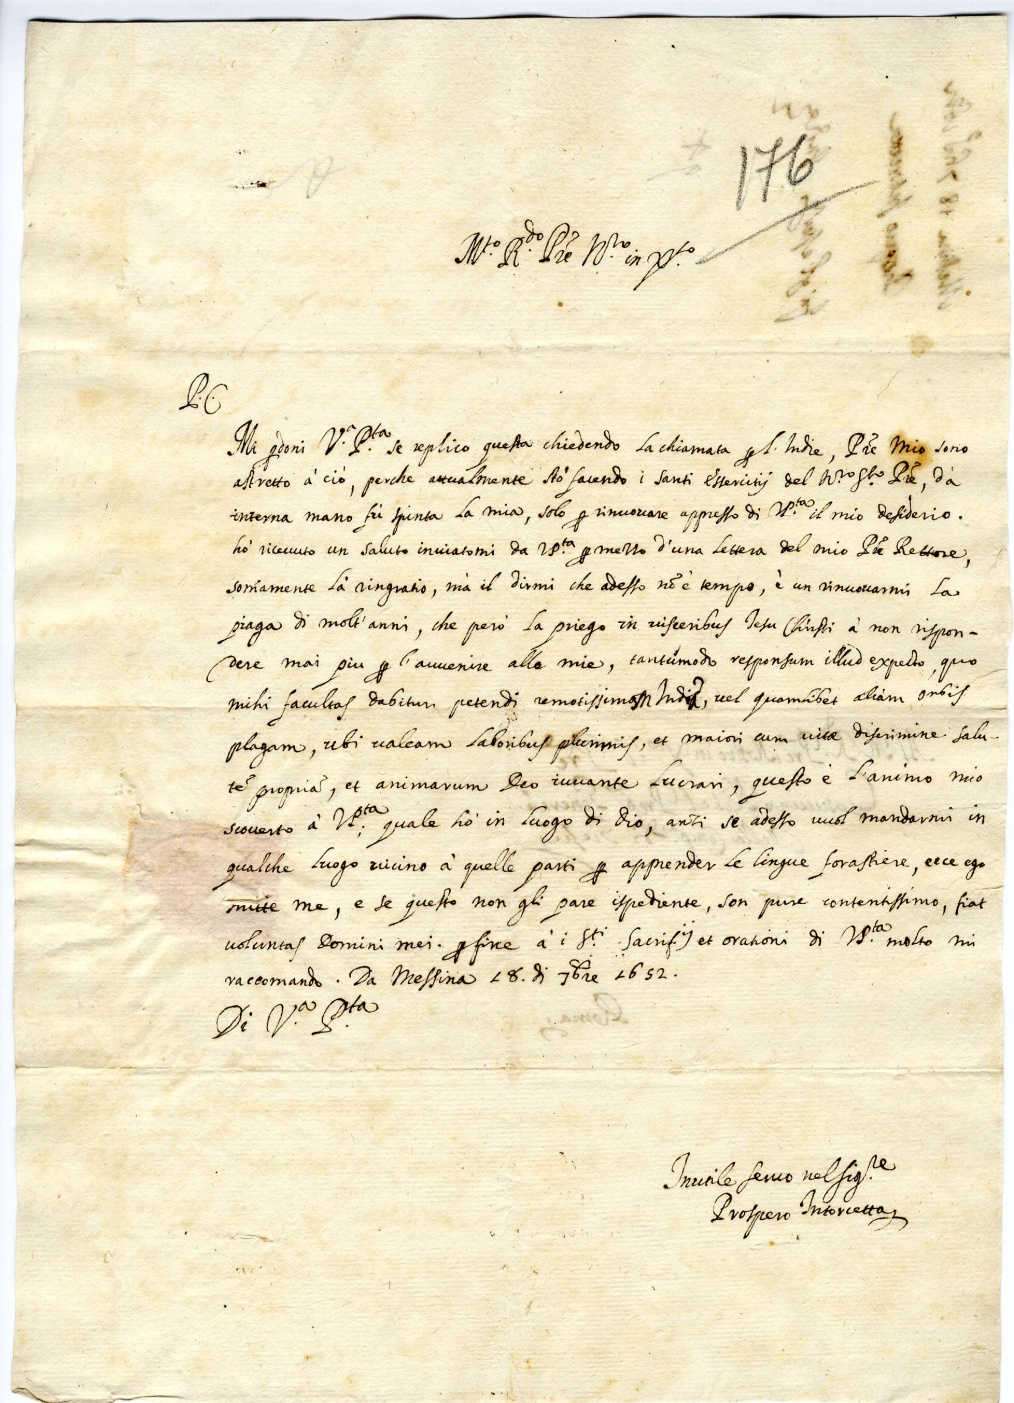 176
M.to R.do Pre N.ro in X.to
P. C.
Mi pdoni V.a P.ta se replico questa chiedendo la chiamata p l'Indie, Pre Mio sono
astretto à ciò, perche attualmente stò facendo i santi esserciti del N.ro S.to Pre, dà
interna mano fù spinta la mia, solo p rinuovare appresso di V.P.ta il mio desiderio.
hò ricevuto un saluto inviatomi da V.P.ta p mezzo d'una lettera del mio Pre Rettore,
somamente là ringratio, mà il dirmi che adesso nõ è tempo, è un rinuovarmi la
piaga di molt'anni, che però la priego in visceribus Jesu Christi à non rispon-
dere mai piu p l'avvenire alle mie, tantũmodo responsum illud expecto, quo
mihi facultas dabitur petendi remotissimos Indos, vel quamlibet aliam orbis
plagam, ubi valeam laboribus plurimis, et maiori cum vitæ discrimine salu-
tẽ propriã, et animarum Deo iuvante lucrari, questo è l'animo mio
scoverto à V.P.ta quale hò in luogo di Dio, anzi se adesso vuol mandarmi in
qualche luogo vicino à quelle parti p apprender le lingue forastiere, ecce ego
mitte me, e se questo non gli pare ispediente, son pure contentissimo, fiat
voluntas Domini mei. p fine à i S.ti Sacrif.ij et orationi di V.P.ta molto mi
raccomando. Da Messina 18. di 7bre 1652.
Di V.a P.ta
Inutile servo nel Sig.re
Prospero Intorcetta